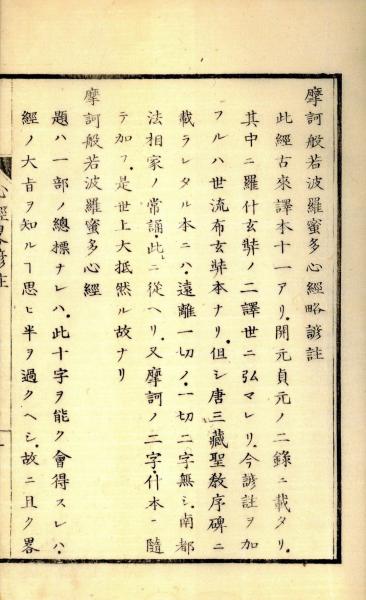 摩訶般若波羅蜜多心經略諺註
此經古來譯本十一アリ．開元貞元ノ二錄ニ載タリ．
其中ニ羅什玄奘ノ二譯世ニ弘マレリ．今諺註ヲ加
フルハ世流布玄奘本ナリ．但シ唐三藏聖教序碑ニ
載ラレタル本ニハ．遠離一切ノ．一切二字無シ．南都
法相家ノ常誦．此ニ從ヘリ．又摩訶ノ二字．什本ニ隨
テ加フ．是世上大抵然ル故ナリ
摩訶般若波羅蜜多心經
題ハ一部ノ總標ナレハ．此十字ヲ能ク會得スレハ．
經ノ大旨ヲ知ルヿ思ヒ半ヲ過クヘシ．故ニ且ク畧
心經畧諺註